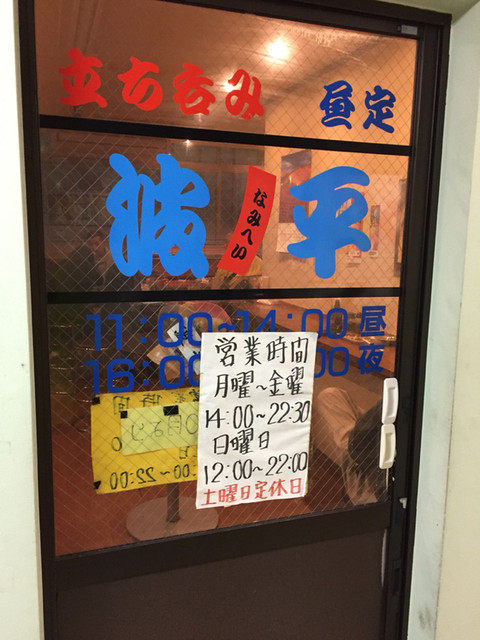 立ち呑み 昼定
波平
なみへい
11:00~14:00 昼
16:00 00 夜
営業時間
月曜~金曜
14:00~22:30
日曜日
12:00~22:00
土曜日定休日